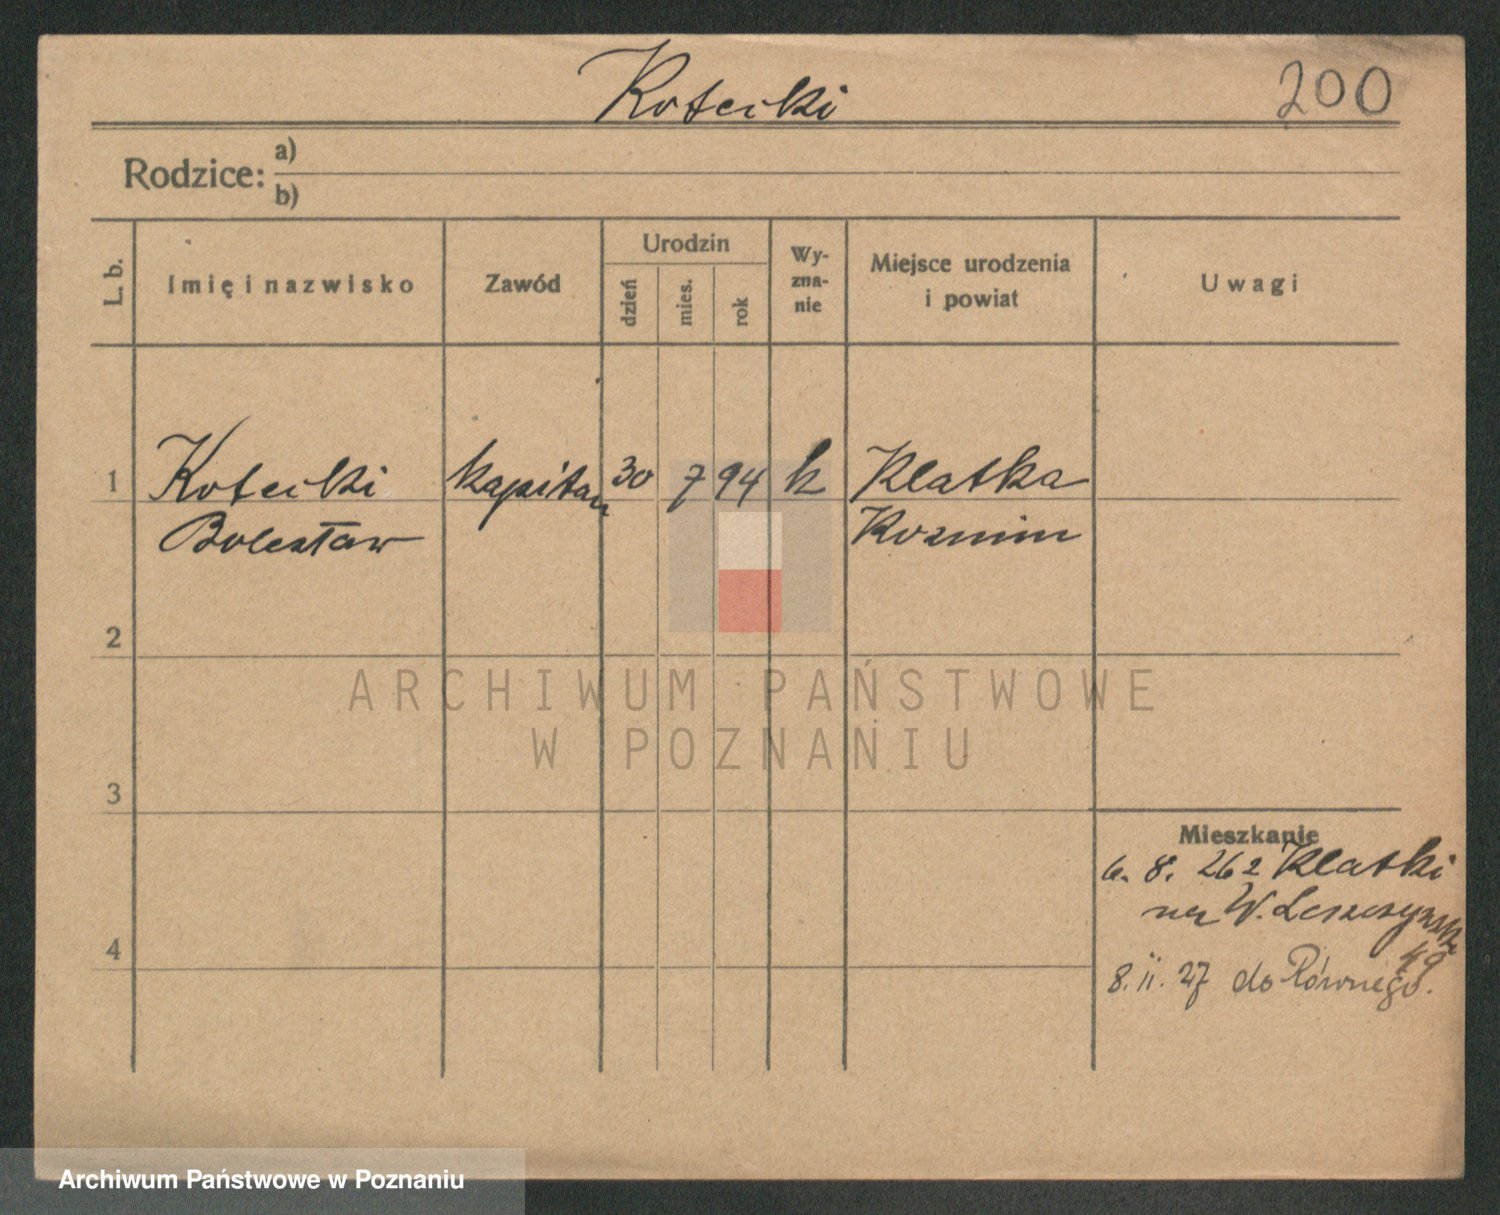 Kotecki
200
Rodzice: a)
b)
L. b.
Imię i nazwisko
Zawód
Urodzin
dzień
mies.
rok
Wy-
zna-
nie
Miejsce urodzenia
i powiat
Uwagi
1 Kotecki kapitan 30 7 94 k Klatka
Bolesław Kozmin
2
ARCHIWUM PAŃSTWOWE
W POZNANIU
3
Mieszkanie
6. 8. 262 Klatki
na W. Leszczyńsk
49
4
8. II. 27 do Równego.
Archiwum Państwowe w Poznaniu